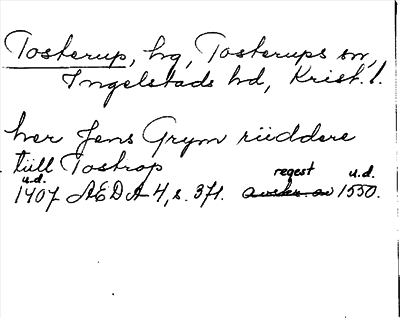 Tosterup, hg, Tosterups sn,
Ingelstads hd, Krist. l.
her Jens Grym rüddere
tüll Tostrop
u.d. regest u.d.
1407 AEDA 4, s. 371. avskr. av 1550.